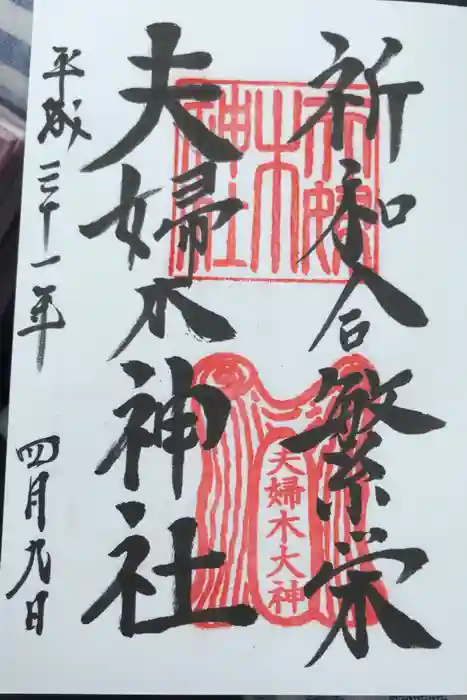 祈和合繁栄
夫婦木神社
平成三十一年
四月九日
夫婦木神社
夫婦木大神